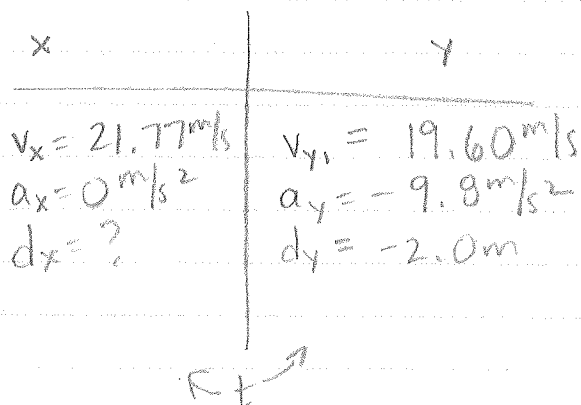 x y
vx = 21.77 m/s vy1 = 19.60 m/s
ax = 0 m/s² ay = -9.8 m/s²
dx = ? dy = -2.0m
t